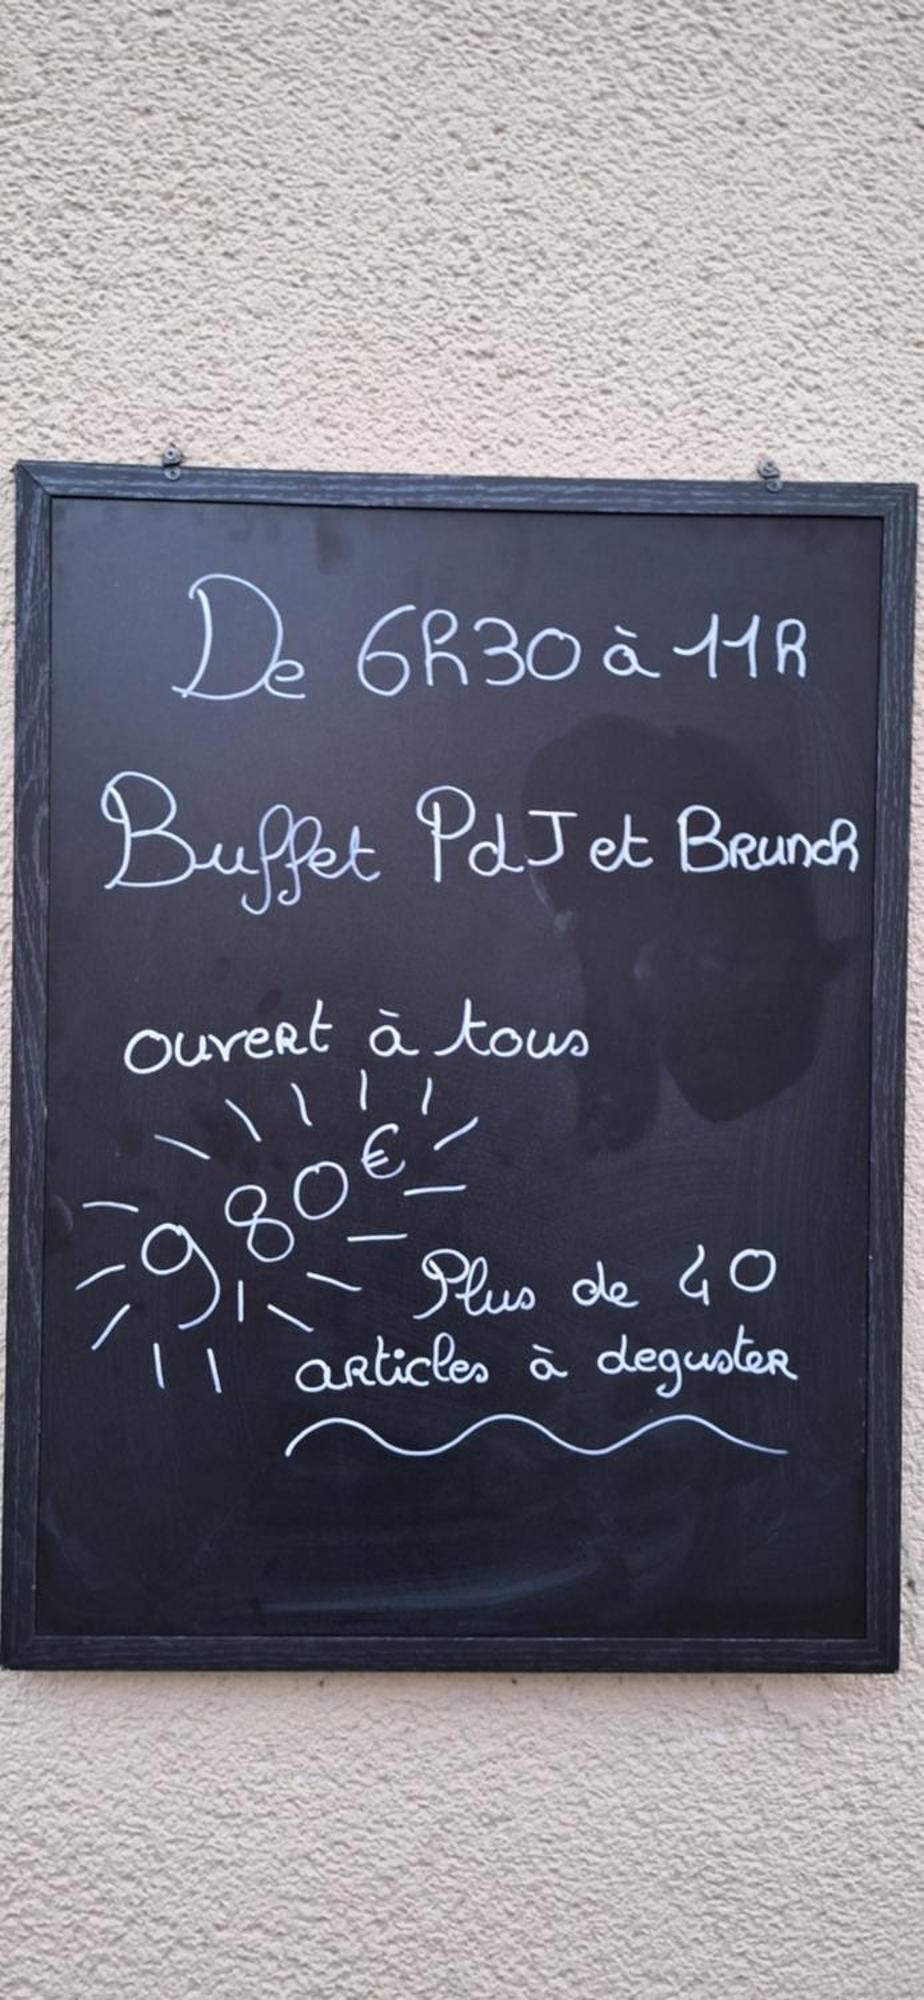 De 6h30 à 11h
Buffet PdJ et Brunch
ouvert à tous
9 80€
Plus de 40
articles à deguster